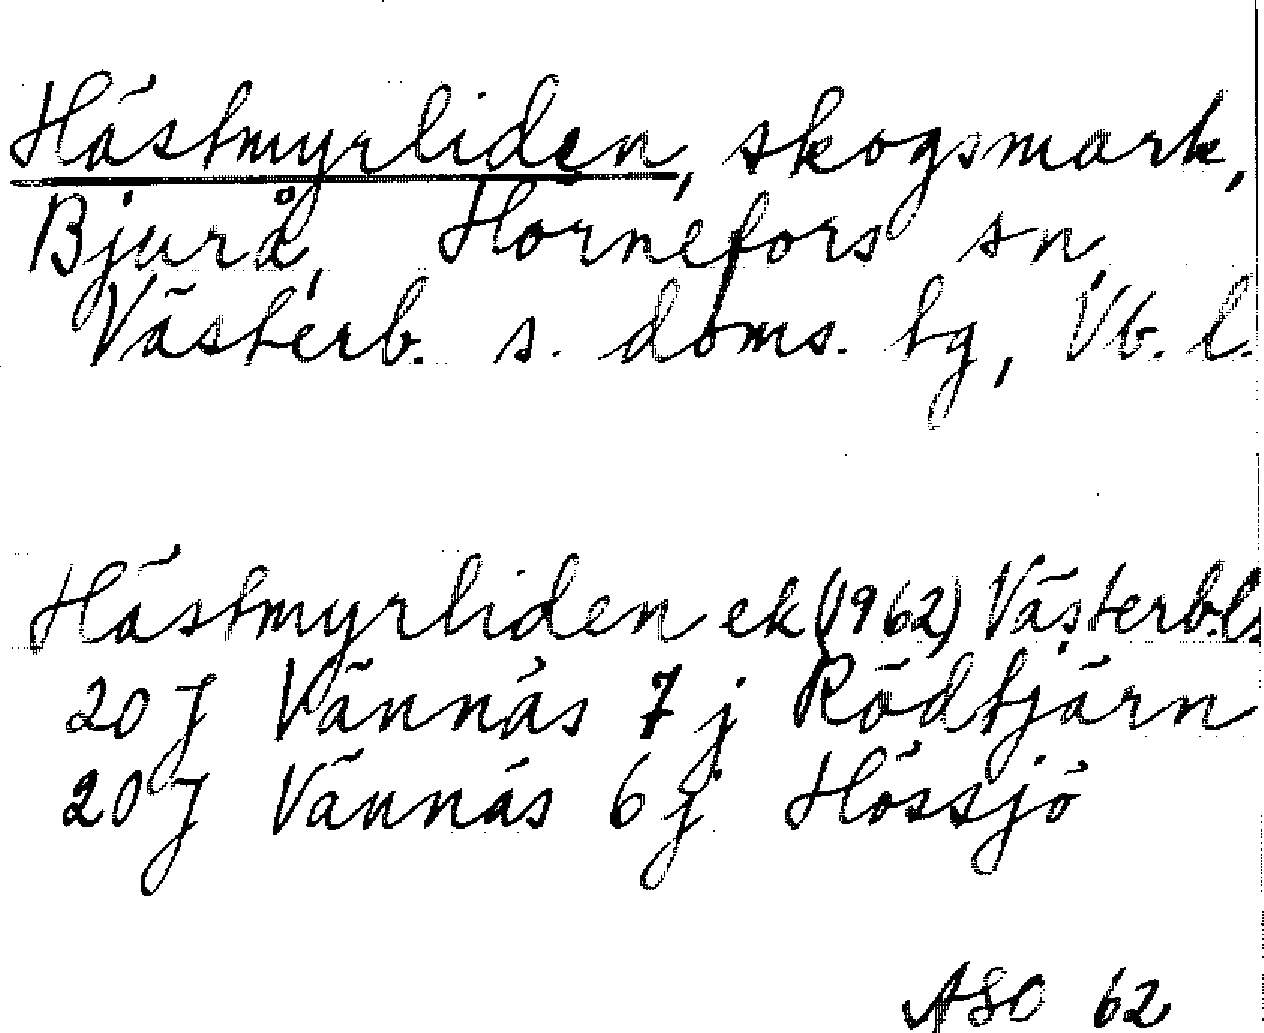 Hästmyrliden, skogsmark,
Bjurå, Hörnefors sn,
Västerb. s. doms. tg, Vb. l.
Hästmyrliden ek (1962) Västerb. l.
20 J Vännäs 7 j Rödtjärn
20 J Vännäs 6 j Hössjö
ASO 62